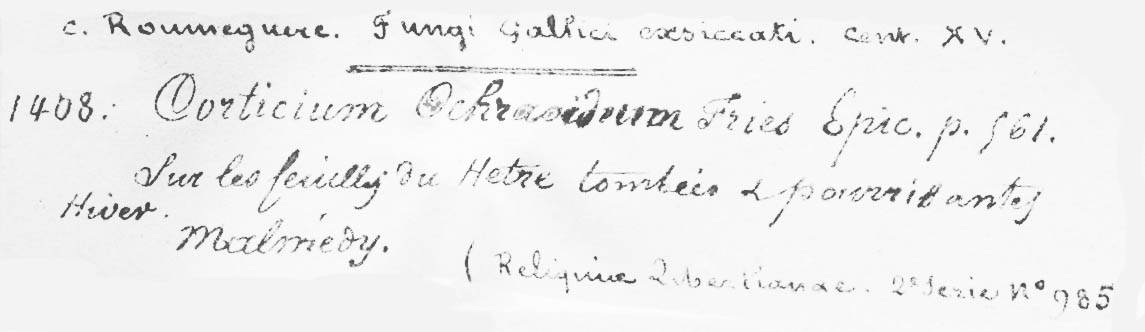 C. Roumeguere. Fungi Gallici exsiccati. Cent. XV.
1408. Corticium Ochraoideum Fries Epic. p. 561.
Sur les feuilles du Hetre tombées & pourrissantes
Hiver.
Malmédy.
( Reliquiae Libertianae. 2e Serie No 985